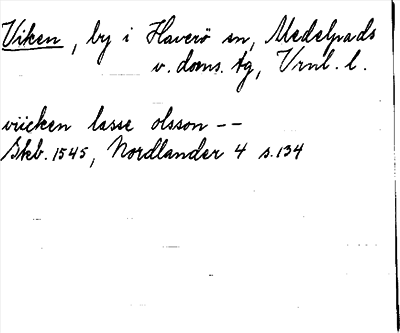 Viken, by i Haverö sn, Medelpads
v. doms. tg, Vrnl. l.
viicken lasse olsson --
Skb. 1545, Nordlander 4 s. 134